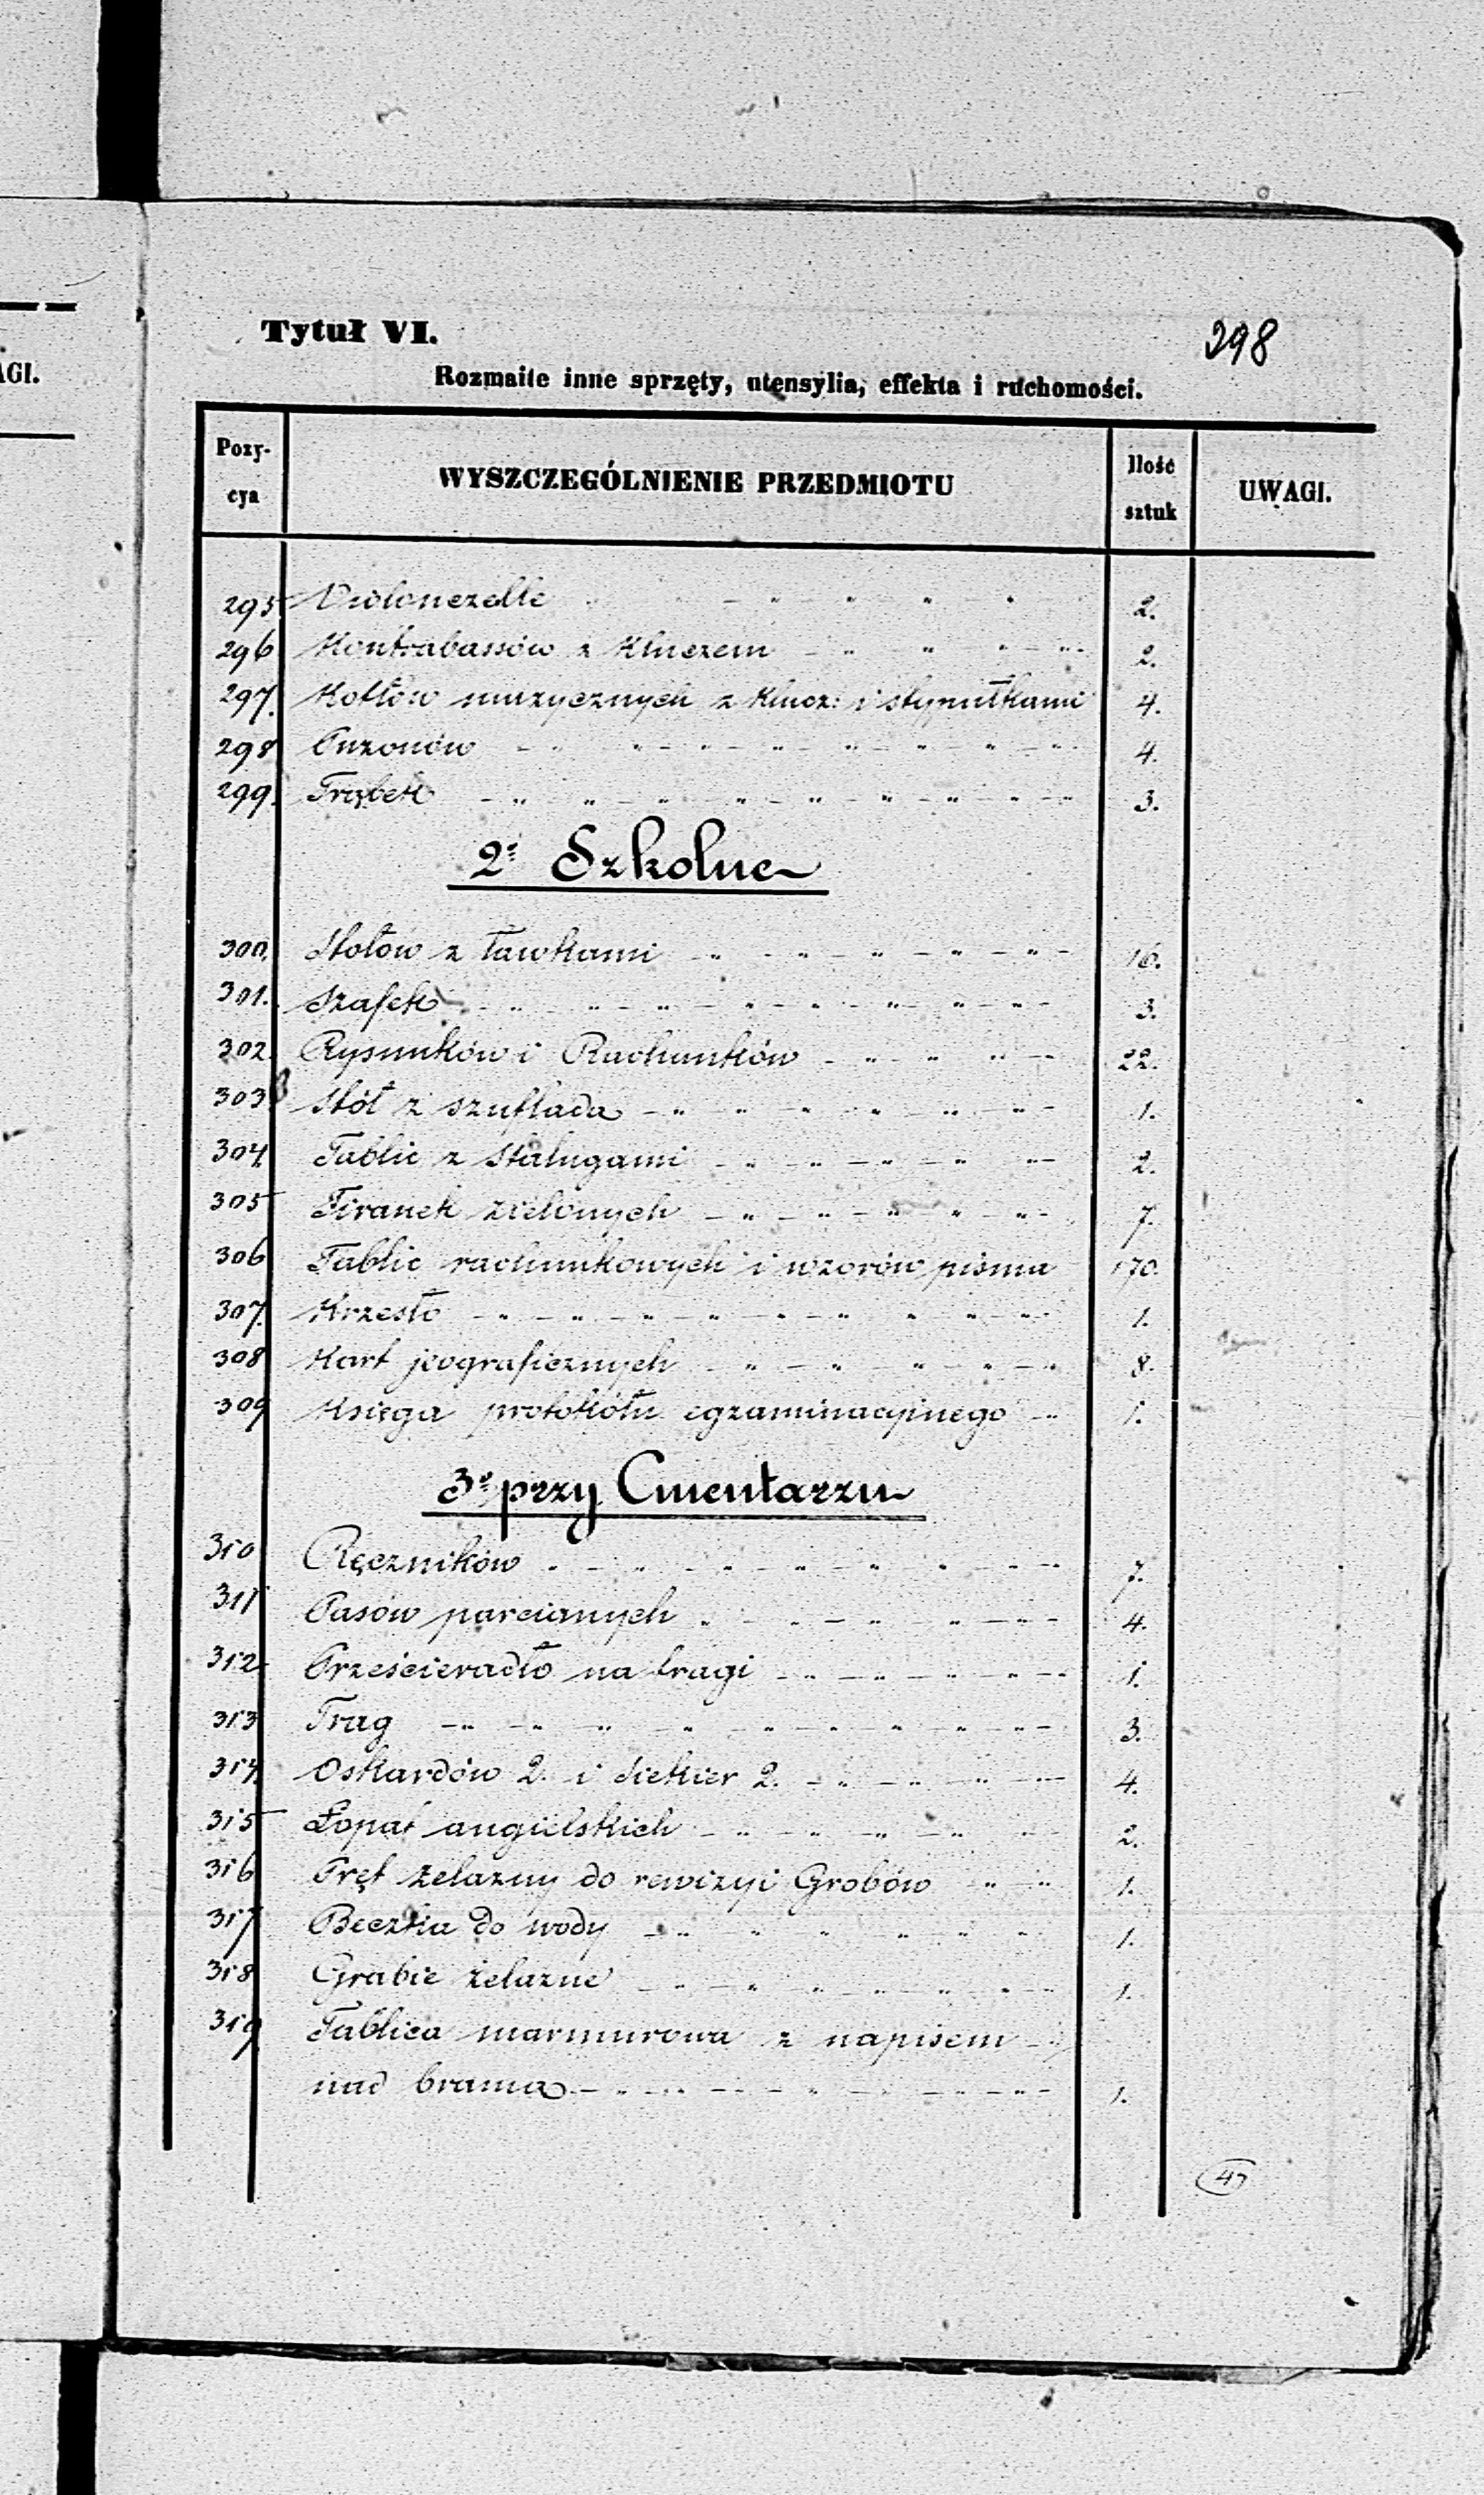 AGI.
Tytuł VI.
298
Rozmaite inne sprzęty, utensylia, effekta i ruchomości.
Pozycya WYSZCZEGÓLNIENIE PRZEDMIOTU Ilość sztuk UWAGI.
295 Violonczelle 2.
296 Kontrabassów z kluczem 2.
297. Kotłów muzycznych z klucz: i stypułkami 4.
298 Puzonów 4.
299. Trąbek 3.
2e Szkolne
300. Stołów z ławkami 16.
301. Szafek 3.
302. Rysunków i Rachunków 22.
303. Stół z szufladą 1.
304. Tablic z stalugami 2.
305 Firanek zielonych 7.
306 Tablic rachunkowych i wzorów pisma 170.
307. Krzesło 1.
308 Kart jeograficznych 8.
309 Księga protokółu egzaminacyjnego 1.
3e przy Cmentarzu
310 Ręczników 7.
311 Pasów parcianych 4.
312 Prześcieradło na tragi 1.
313 Trag 3.
314. Oskardów 2. i siekier 2. 4.
315 Łopat angielskich 2.
316 Pręt żelazny do rewizyi Grobów 1.
317 Beczka do wody 1.
318 Grabie żelazne 1.
319. Tablica marmurowa z napisem
nad bramą 1.
47